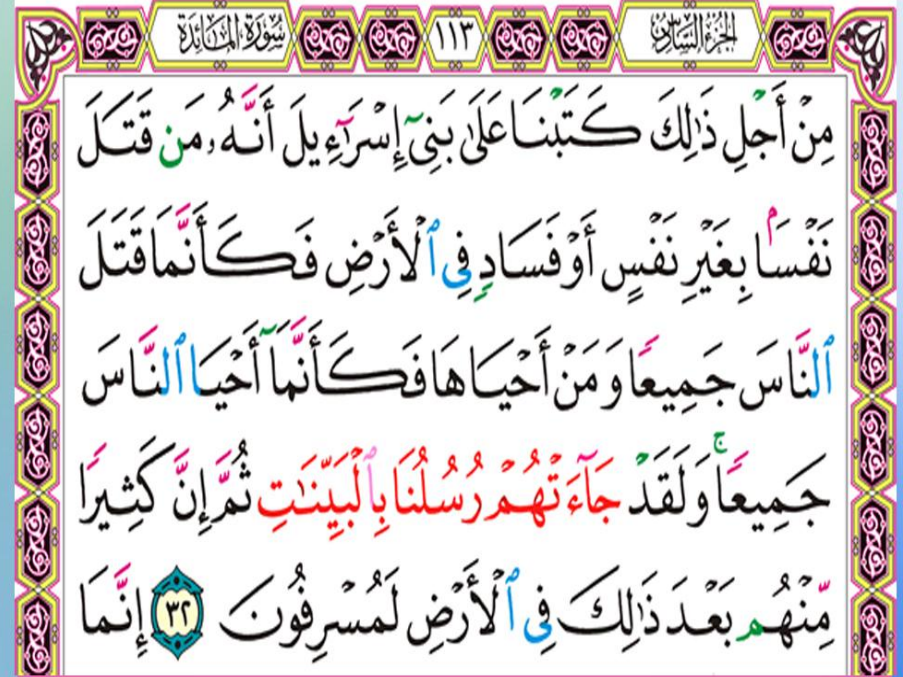 الجزء السادس ١١٣ سورة المائدة
مِنْ أَجْلِ ذَٰلِكَ كَتَبْنَا عَلَىٰ بَنِىٓ إِسْرَٰٓءِيلَ أَنَّهُۥ مَن قَتَلَ
نَفْسَۢا بِغَيْرِ نَفْسٍ أَوْ فَسَادٍ فِى ٱلْأَرْضِ فَكَأَنَّمَا قَتَلَ
ٱلنَّاسَ جَمِيعًا وَمَنْ أَحْيَاهَا فَكَأَنَّمَآ أَحْيَا ٱلنَّاسَ
جَمِيعًا ۚ وَلَقَدْ جَآءَتْهُمْ رُسُلُنَا بِٱلْبَيِّنَٰتِ ثُمَّ إِنَّ كَثِيرًا
مِّنْهُم بَعْدَ ذَٰلِكَ فِى ٱلْأَرْضِ لَمُسْرِفُونَ ٣٢ إِنَّمَا